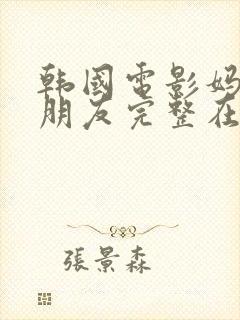 韩國電影妈
朋友完整在
張景森